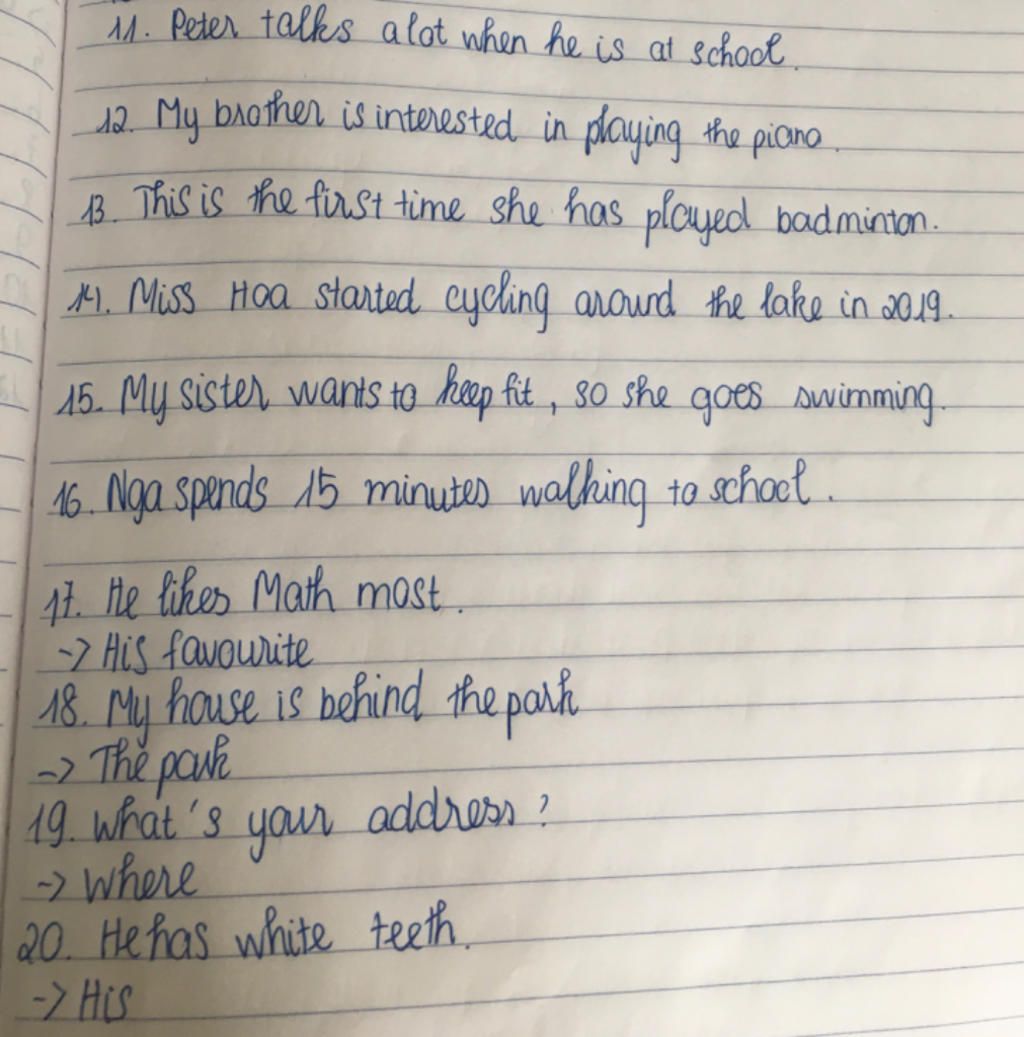 11. Peter talks alot when he is at school.
12. My brother is interested in playing the piano.
13. This is the first time she has played badminton.
14. Miss Hoa started cycling around the lake in 2019.
15. My sister wants to keep fit, so she goes swimming.
16. Nga spends 15 minutes walking to school.
17. He likes Math most.
-> His favourite
18. My house is behind the park
-> The park
19. What's your address?
-> Where
20. He has white teeth.
-> His